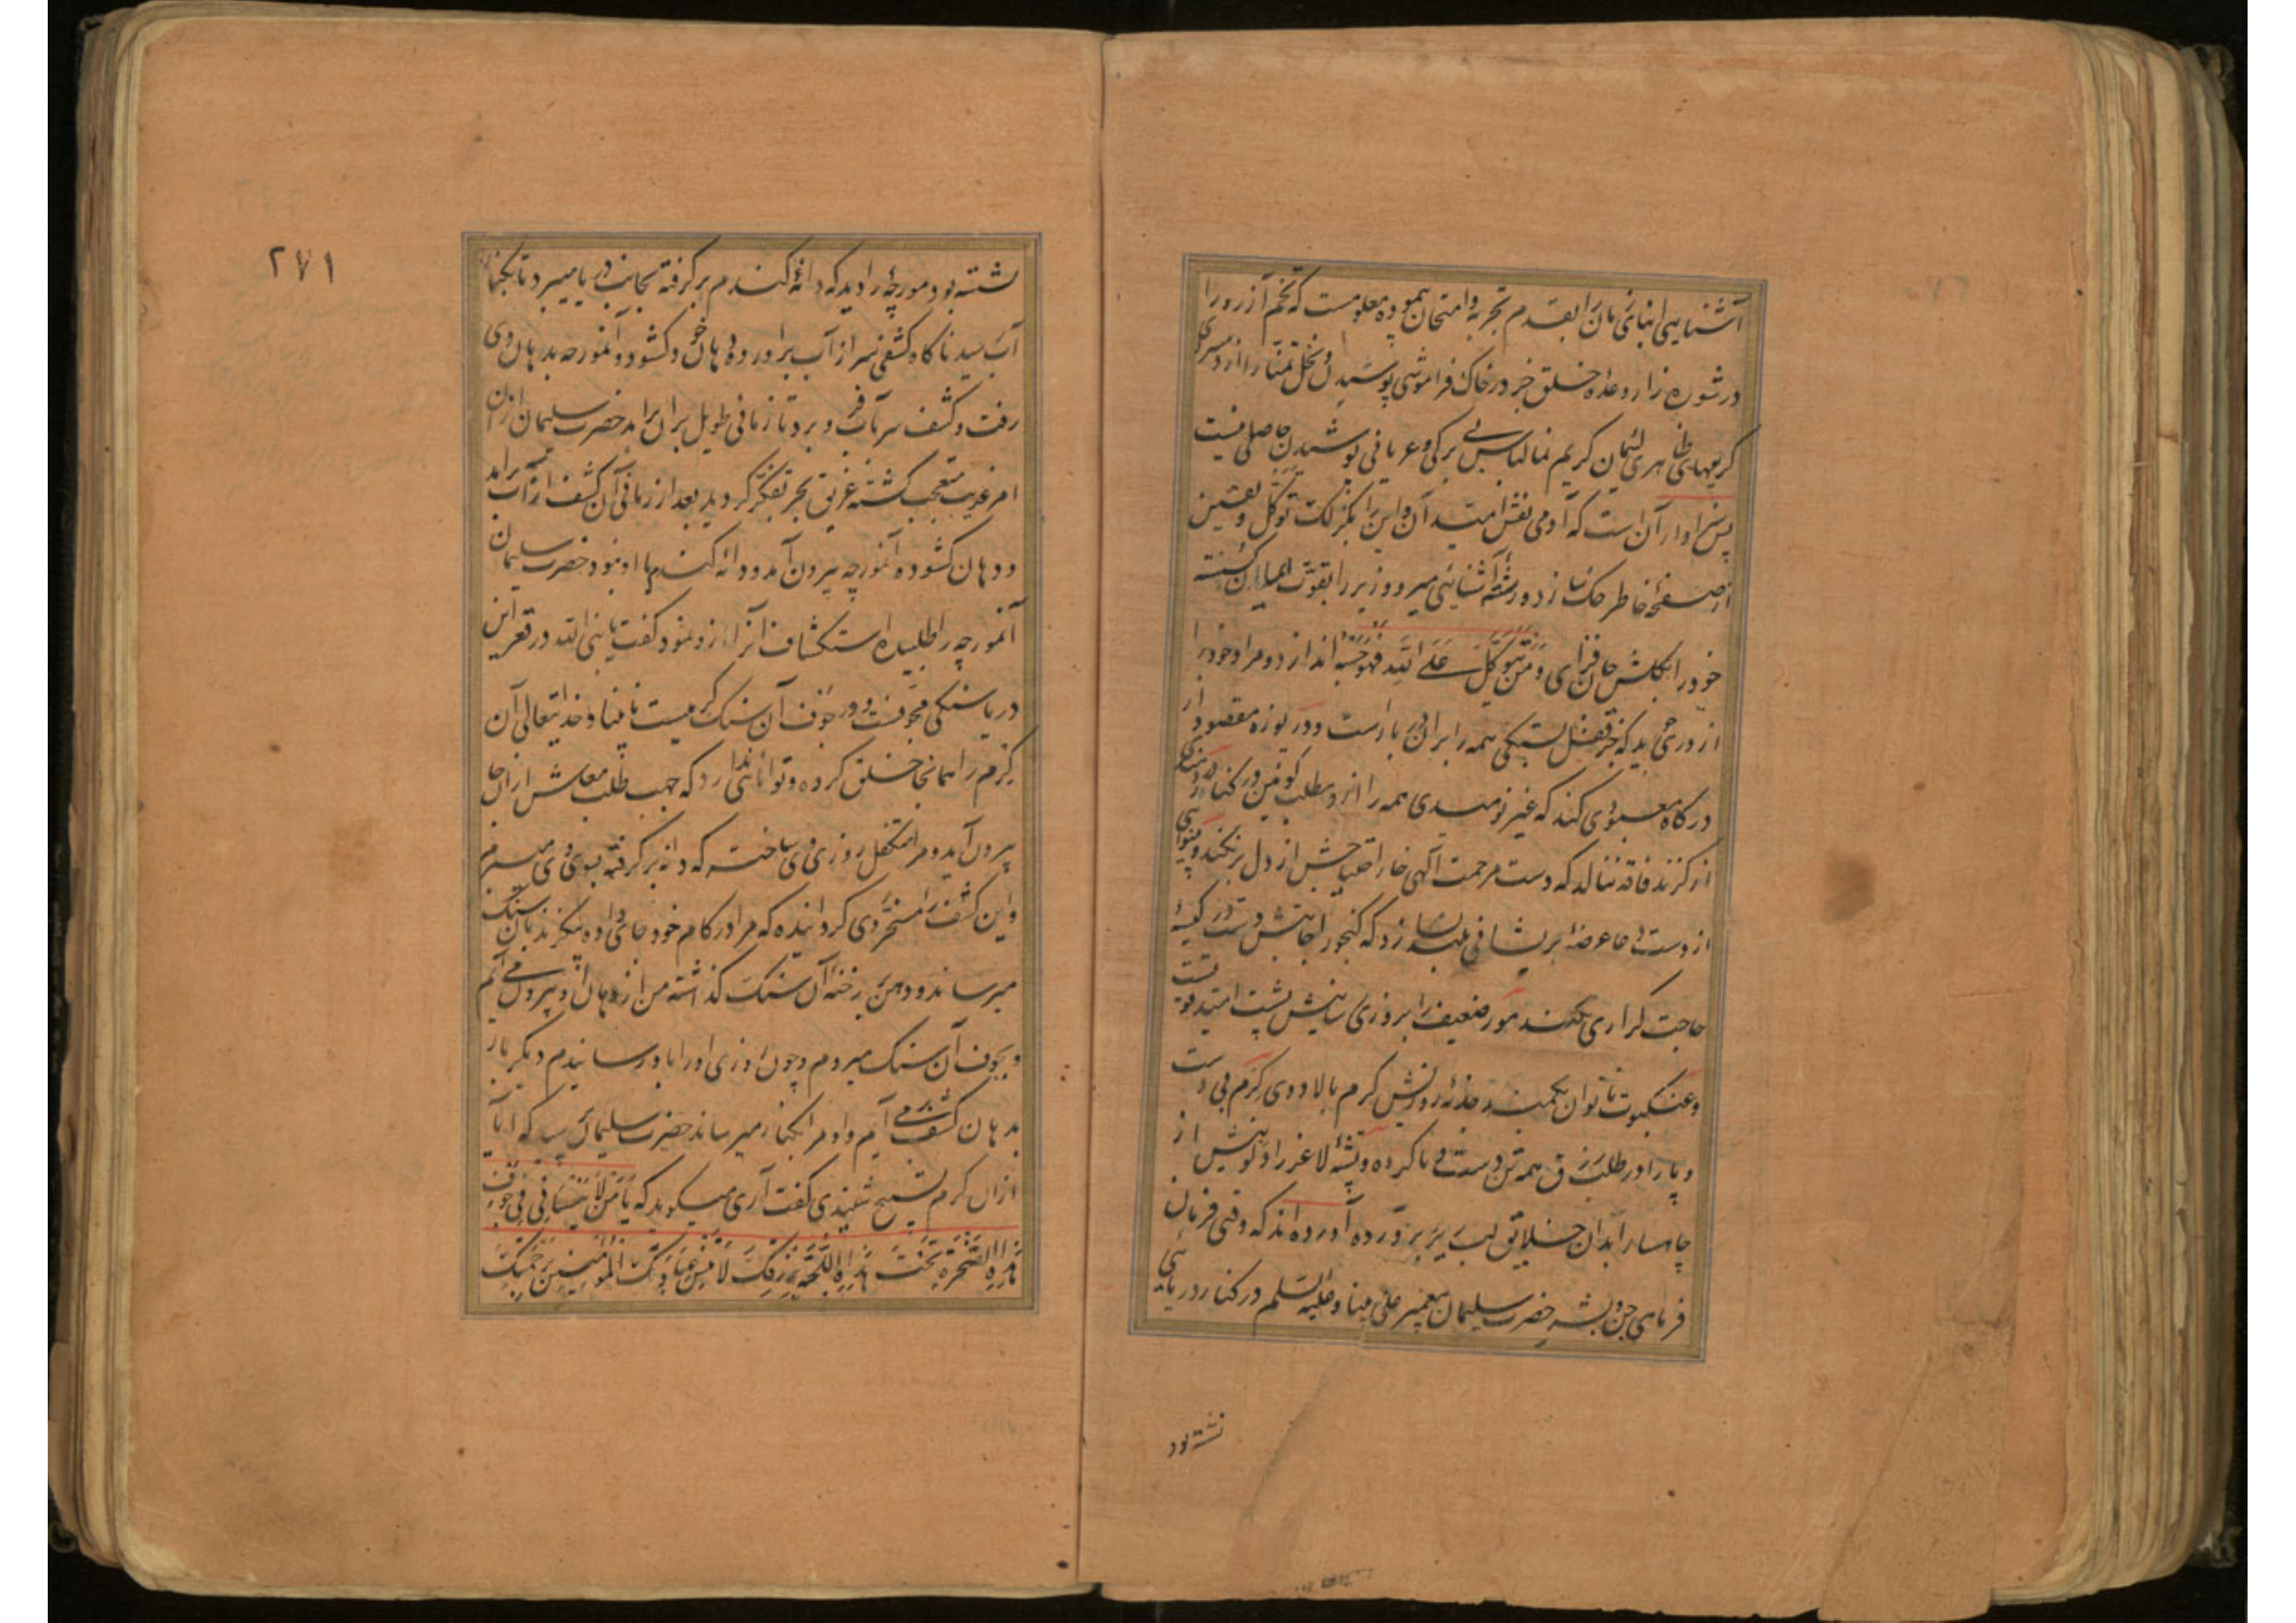 آشنایی ابنای زمان را بقدم تجربه و امتحان پیموده معلومست که تخم آرزو را
در شوره زار وعده خلق جز در خاک فراموشی پوشیدن و نخل تمنا را از
کریمهای ظاهری لئیمان کریم نما لباس بی برکی و عریانی پوشیدن حاصلی نیست
پس سزاوار آن است که آدمی نقش امید آن و این را بکزلک توکل و یقین
از صفحهٔ خاطر حک سازد و رشتهٔ آشنائی میر و وزیر را بقوت
خود را بگلشن جان فزای وَمَنْ یَتَوَکَّلْ عَلَی اللّه فَهُوَ حَسْبُهُ اندازد و مراد خود را
از دری جوید که جز قفل بستکی همه را بر آن در بار است و دریوزه مقصود از
درکاه معبودی کند که غیر نومیدی همه را از در مطلب کونین در کنار
از کزند فاقه ننالد که دست مرحمت آلهی خار احتیاجش از دل برنکند و
از دست دعا عرضهٔ پریشانی بلند نسازد که کنجور اجابتش دست در کیسهٔ
حاجت کزاری نکند مور ضعیف را بروزی رسانیش پشت امید قویست
و عنکبوت ناتوان بکمند جذبهٔ روزیش کرم بالادوی کرم بی دست
و پا را در طلب رزق همه تن دست و پا کرده و پشهٔ لاغر را در کوشش از
چاهسار ابدان خلایق لب ریز برآورده آورده اند که وقتی فرمان
فرمای جن و بشر حضرت سلیمان پیغمبر علی نبینا و علیه السلم در کنار دریائی
نشسته بود
۲۷۱
نشسته بود مورچهٔ را دید که دانهٔ کندم برکرفته بجانب دریا میبرد تا بکنار
آب رسید ناکاه کشفی سر از آب برآورده دهان خود کشود و آنمورچه بدهان وی
رفت و کشف سر بآب فرو برد تا زمانی طویل بران برآمد حضرت سلیمان ازان
امر غریب متعجب کشته غریق بحر تفکر کردید بعد از زمانی آن کشف از آب برآمد
و دهان کشوده آنمورچه بیرون آمد و دانه کندم با او نبود حضرت سلیمان
آنمورچه را طلبیده استکشاف آنراز ازو نمود کفت یا نبی الله در قعر این
دریا سنکی مجوفست و در جوف آن سنک کرمیست نابینا و خدایتعالی آن
کرم را همانجا خلق کرده و توانائی ندارد که جهت طلب معاش ازان جا
بیرون آید و مرا متکفل روزی وی ساخته که دانه برکرفته بسوی وی میبرم
و این کشف را مسخر وی کردانیده که مرا در کام خود جای داده بنزد آن سنک
میرساند و دهن بر رخنهٔ آن سنک کذاشته من از دهان او بیرون می آیم
و بجوف آن سنک میروم و چون روزی او را باو رسانیدم دیکر بار
بدهان کشف می آیم و او مرا بکنار میرساند حضرت سلیمان پرسید که آیا
ازان کرم تسبیح شنیدی کفت آری میکوید که یَا مَنْ لَا یَنْسَانِی فِی جَوْفِ
هٰذِهِ الصَّخْرَةِ تَحْتَ هٰذِهِ اللُّجَّةِ بِرِزْقِکَ لَا تَنْسَ عِبَادَکَ الْمُؤْمِنِینَ بِرَحْمَتِکَ